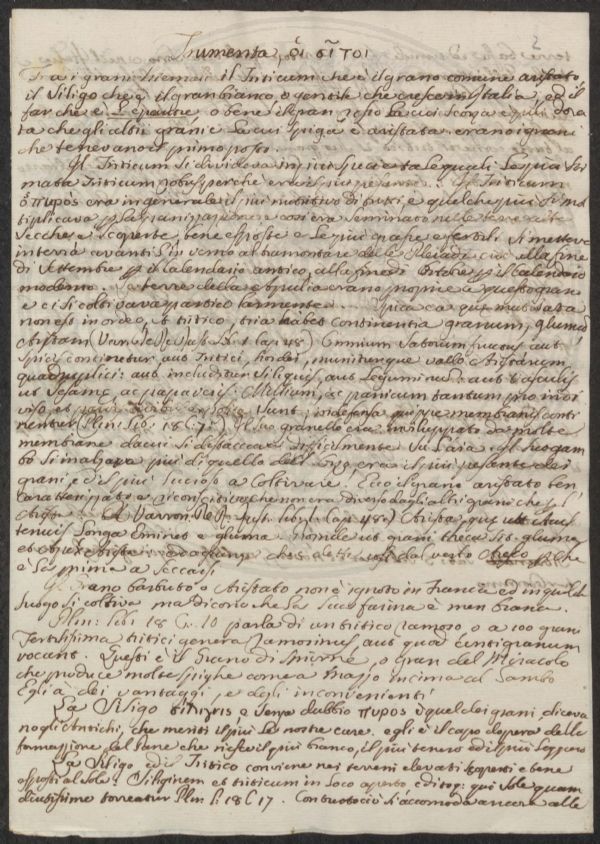 2
Frumenta οἱ σῖτοι
Tra i grani Iiemali il Triticum che è il grano comune aristato
il Siligo che è il gran bianco e gentile che cresce in Italia, ed il
far che è o bene il gran rosso la cui scorza è più dora
ta che gli altri grani e la cui spiga è aristata erano i grani
che tenevano il primo posto.
Il Triticum si divideva in più specie tra le quali la più sti
mata Triticum robus perchè era il più pesante. Il Triticum
ὁ πυρος era in generale il più nutritivo di tutti e quel che più si mol
tiplicava e così era seminato nelle terre
secche e scoperte, bene esposte e le più grasse e fertili si metteva
in terra avanti l'inverno al tramontare delle Pleiadi cioè alla fine
di Settembre il Calendario antico, alla fine d'Ottobre il Calendario
moderno. Le terre della Puglia erano proprie a questo grano
e ci si coltivava particolarmente. Spica ea quae mutilata
non est in ordeo, et tritico, tria habet continentia granum, glumam
Aristam (Varr. de Re Rust. lib. 1 cap. 48) Omnium satorum fructus aut
spicis continetur, aut tritici, hordei, muniturque vallo Aristarum
quadruplici: aut includitur siliquis, aut leguminum: aut vasculis
ut sesamae, ac papaveris: Milium, ac panicum tantum pro indi
viso, et parvis sunt, indefensa quippe membranis conti
nentur (Plin. lib. 18 C. 7). Il suo granello era inviluppato da molte
membrane da cui si distaccava difficilmente su l'aia il suo gam
bo si inalzava più di quello dell' orzo era il più pesante dei
grani, ed il più lucroso a coltivare. Ecco il grano aristato ben
caratterizzato e riconoscitivo che non era diverso dagli altri grani che pel
Arista. A Varron Re Rust. lib. 1 Cap. 48 Arista, quae ut acus
tenuis longa eminet e gluma proinde ut grani theca sit gluma
et apex arista
e la prima a seccarsi
Il Grano barbuto o Aristato non è ignoto in Francia ed in qualche
luogo si coltiva ma dicono che la sua farina è men bianca.
Plin: lib: 18 C. 10 parla di un tritico ramoso o a 100 grani
Fertilissima tritici genera ramosum, aut quod centigranum
vocant. Questi è il Grano di Smirne, o gran del Miracolo
che produce molte spighe come a mazzo in cima al Gambo
Egli à dei vantaggi, e degli inconvenienti
La Siligo e senza dubbio πυρος è quel dei grani, diceva
no gli Antichi, che meriti il più le nostre cure. egli è il capo d'opera della
formazione del Pane che riesce il più bianco, il più tenero ed il più leggero
La Siligo ed il Tritico conviene nei terreni elevati scoperti e bene
esposti al Sole: Siliginem et triticum in loco aperto, edito: qui sole quam
diutissime torreatur Plin. l: 18 C 17. Contuttociò s'accomoda ancora alle